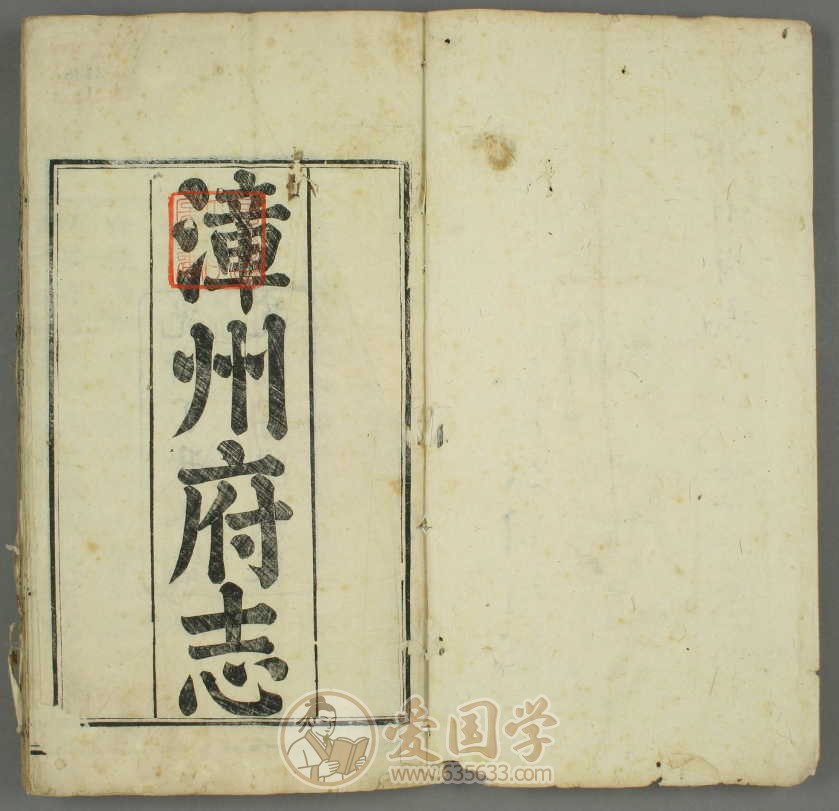 漳州府志
爱国学
www.635633.com